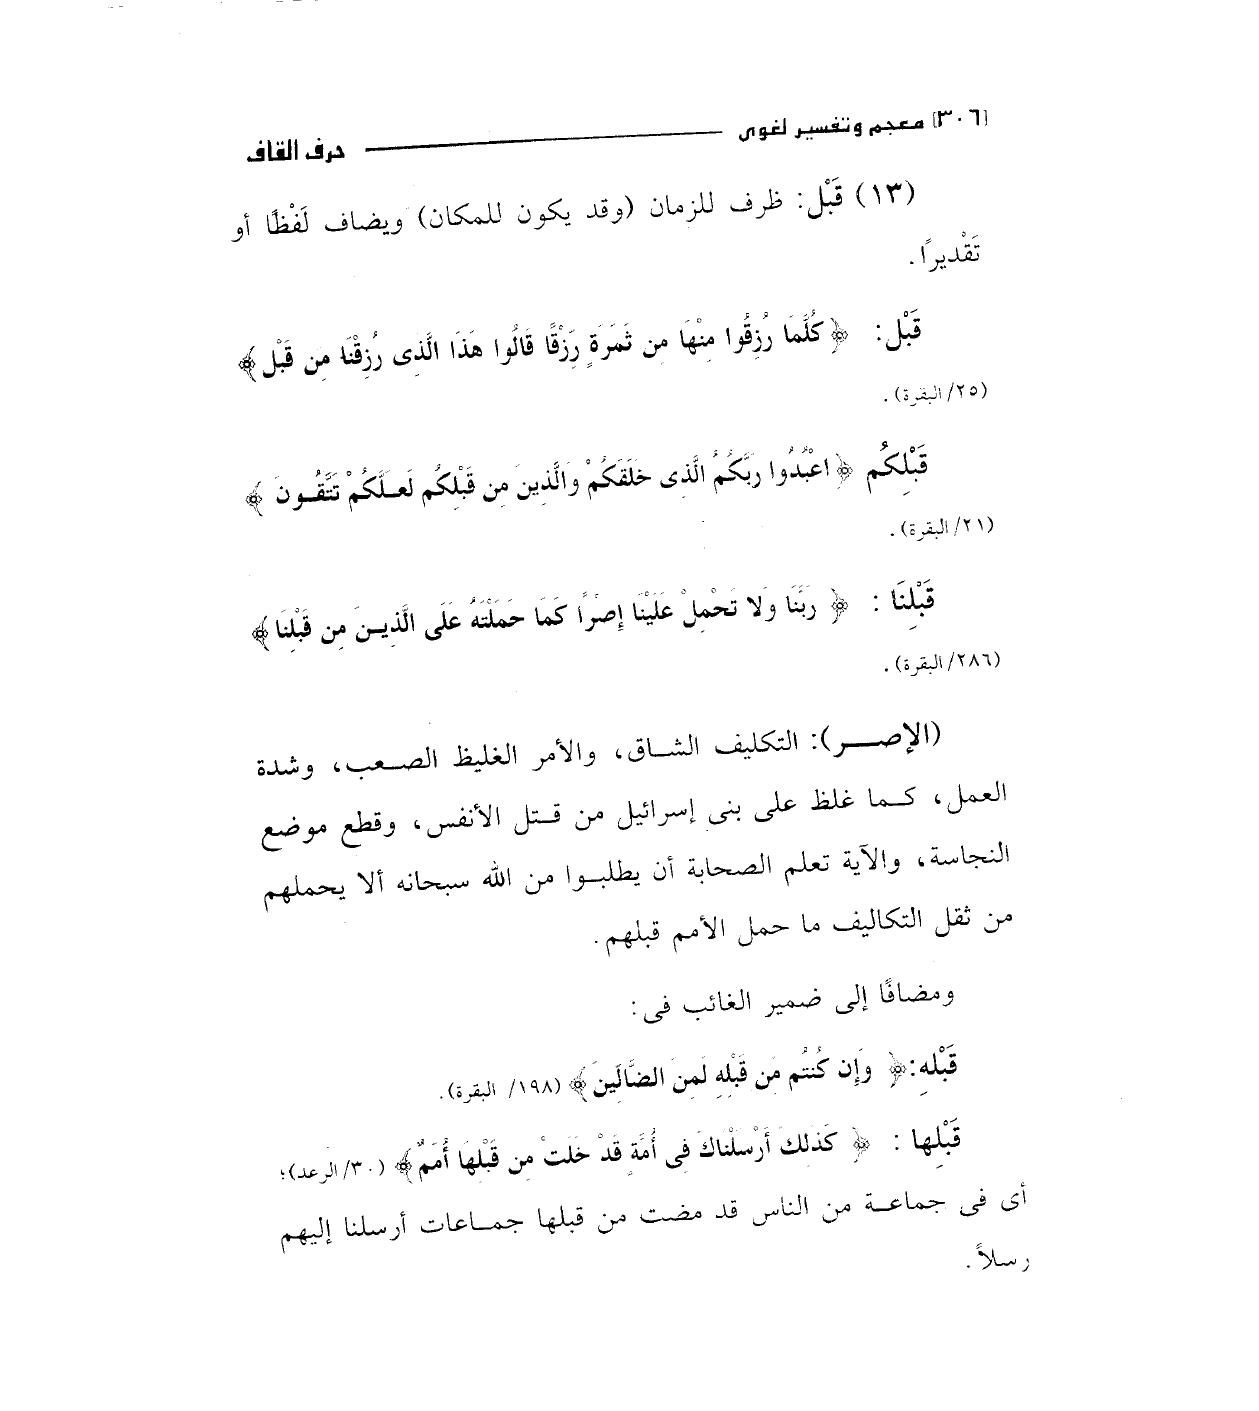 [٣٠٦] معجم وتفسير لغوى حرف القاف
(١٣) قَبْل: ظرف للزمان (وقد يكون للمكان) ويضاف لَفْظًا أو
تَقْديرًا.
قَبْل: ﴿كُلَّمَا رُزِقُوا مِنْهَا مِن ثَمَرَةٍ رِّزْقًا قَالُوا هَذَا الَّذِى رُزِقْنَا مِن قَبْل﴾
(٢٥/ البقرة).
قَبْلِكُم ﴿اعْبُدُوا رَبَّكُمُ الَّذِى خَلَقَكُمْ وَالَّذِينَ مِن قَبْلِكُم لَعَلَّكُمْ تَتَّقُونَ ﴾
(٢١/ البقرة).
قَبْلِنَا : ﴿ رَبَّنَا وَلا تَحْمِلْ عَلَيْنَا إِصْرًا كَمَا حَمَلْتَهُ عَلَى الَّذِينَ مِن قَبْلِنَا﴾
(٢٨٦/ البقرة).
(الإصر): التكليف الشاق، والأمر الغليظ الصعب، وشدة
العمل، كما غلظ على بنى إسرائيل من قتل الأنفس، وقطع موضع
النجاسة، والآية تعلم الصحابة أن يطلبوا من الله سبحانه ألا يحملهم
من ثقل التكاليف ما حمل الأمم قبلهم.
ومضافًا إلى ضمير الغائب فى:
قَبْلِهِ:﴿ وَإِن كُنتُم مِّن قَبْلِهِ لَمِنَ الضَّالِّينَ﴾ (١٩٨/ البقرة).
قَبْلِها : ﴿ كَذَلِكَ أَرْسَلْنَاكَ فِى أُمَّةٍ قَدْ خَلَتْ مِن قَبْلِهَا أُمَمٌ﴾ (٣٠/ الرعد)؛
أى فى جماعة من الناس قد مضت من قبلها جماعات أرسلنا إليهم
رسلاً.